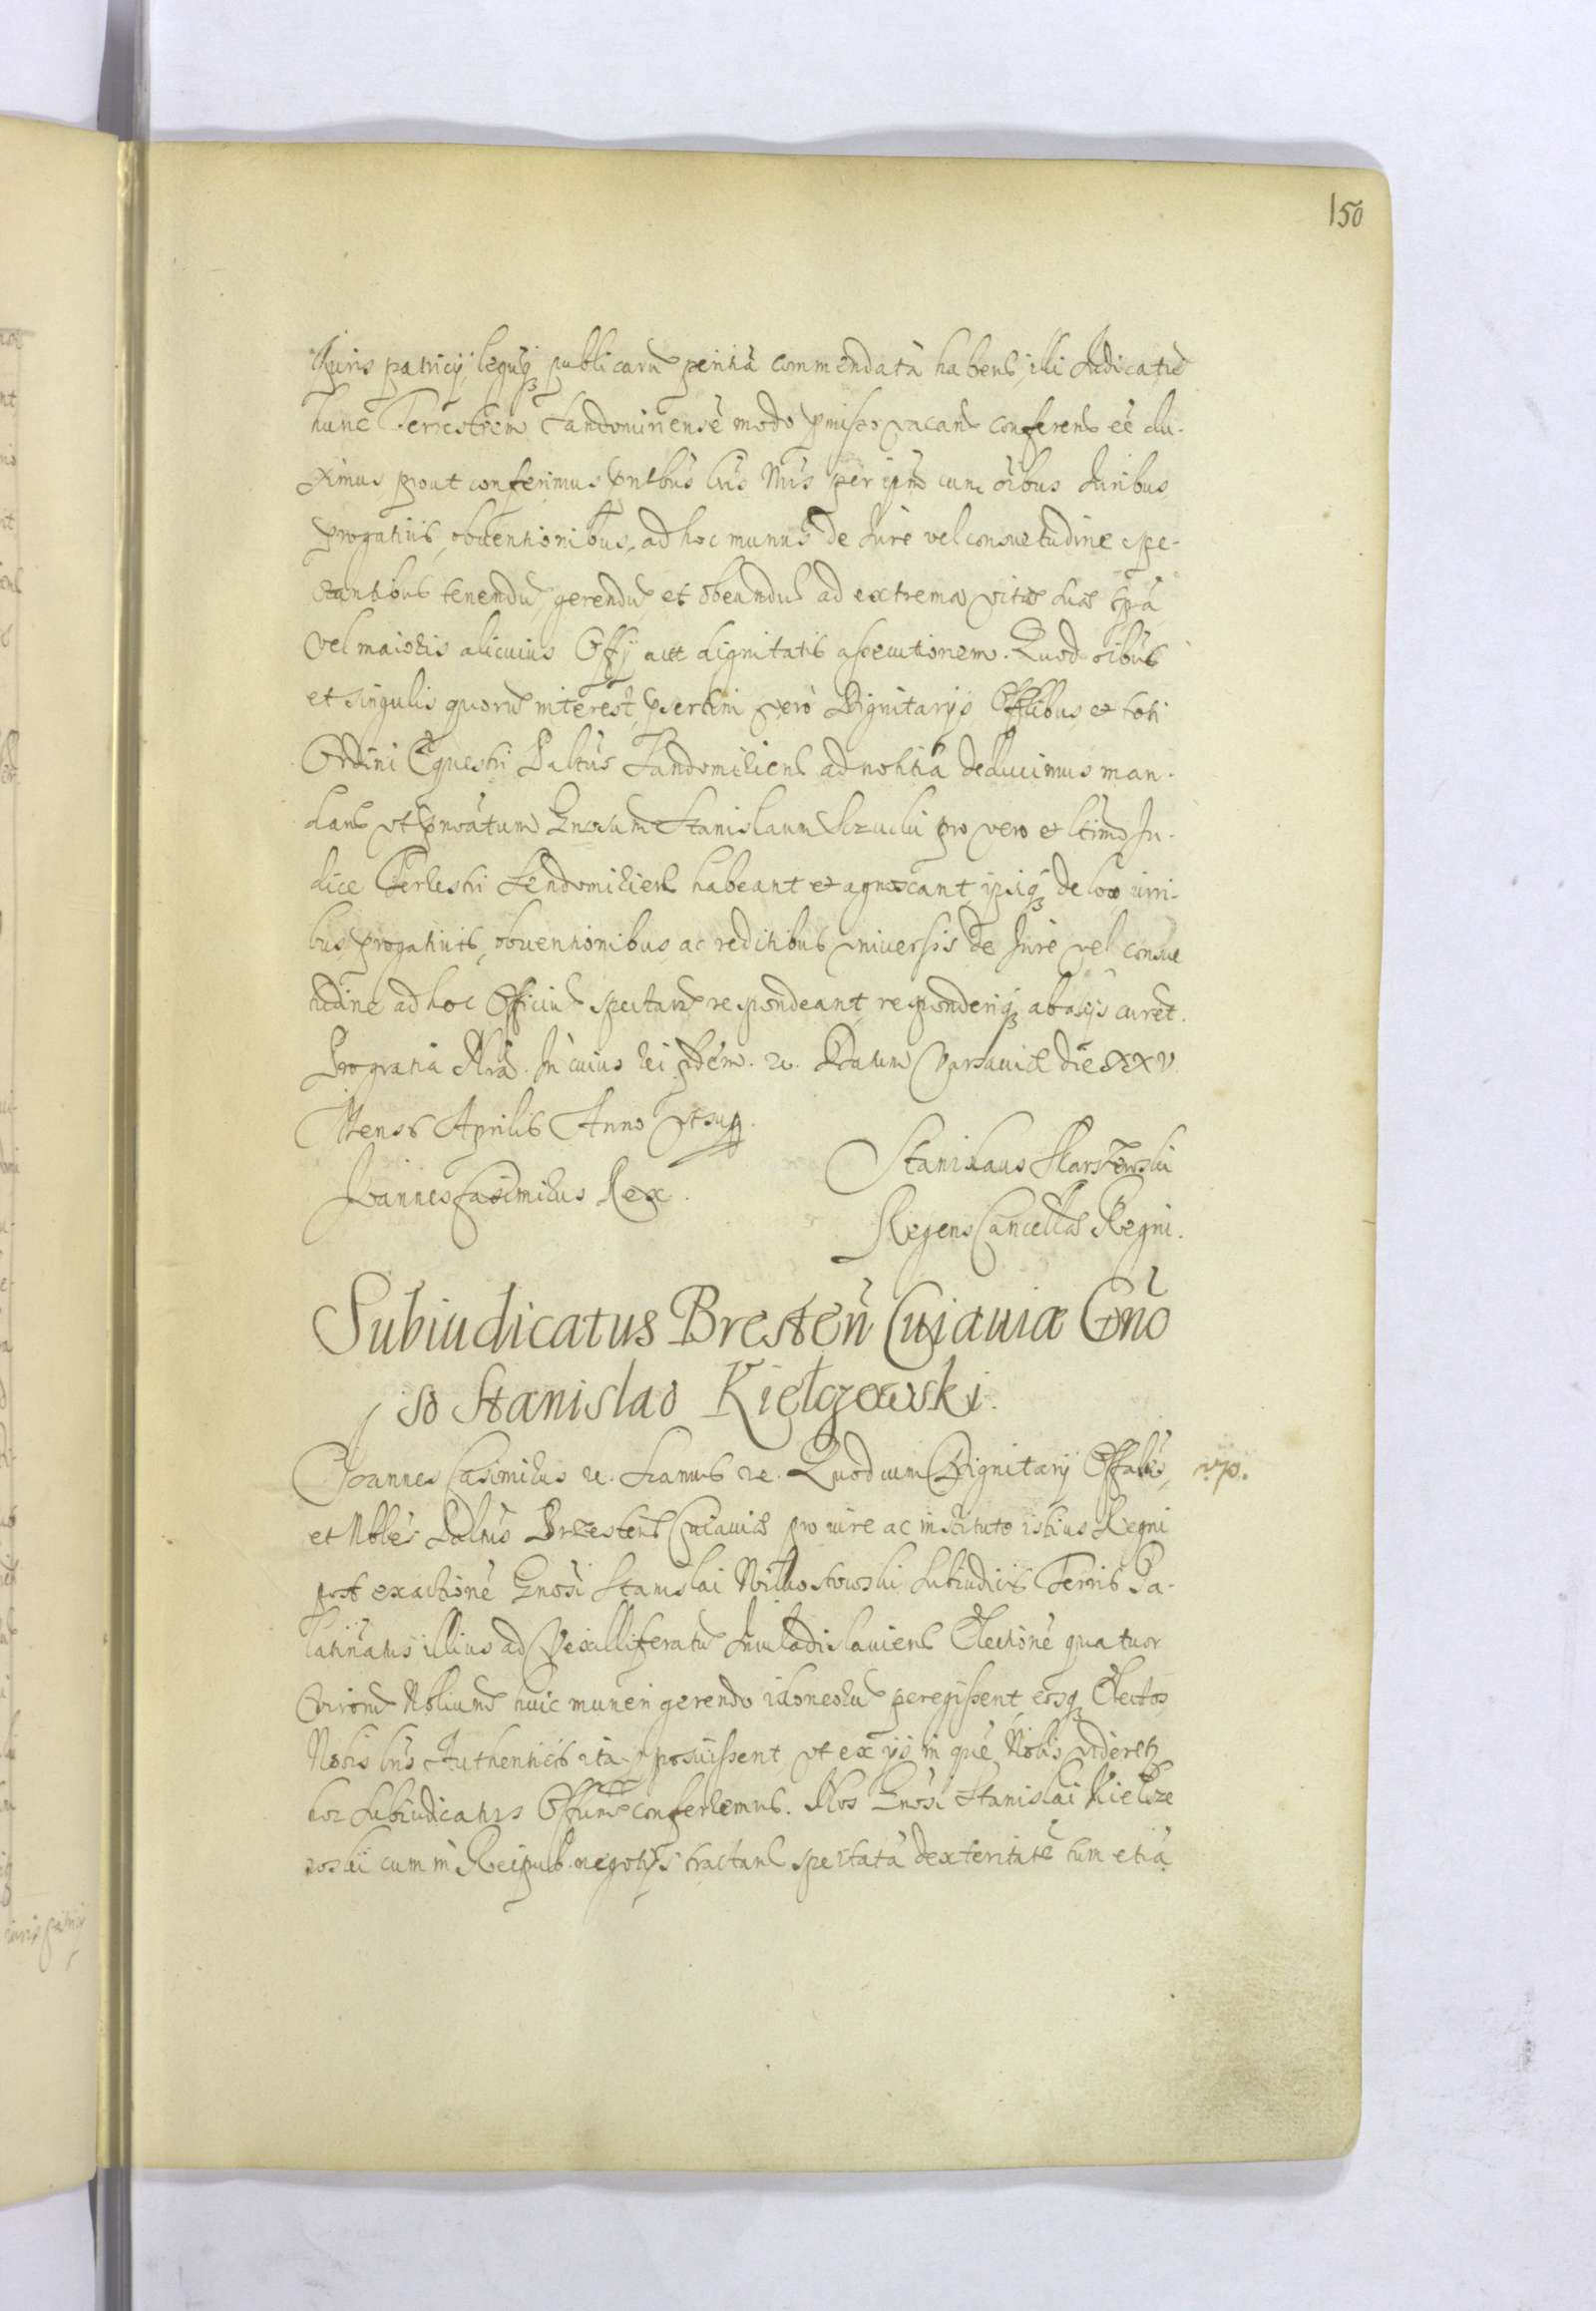 150
Iuris patricij legūq; publicarū peritiā commendatā habens, illi Iudicatū
hunc Terrestrem Sandomiriensē modo pmisso vacans conferend eē du-
ximus, prout conferimus pntbus lris Nris per ipm cum oibus Iuribus
progatiuis, obuentionibus, ad hoc munus de Iure vel consuetudine spe-
ctantibus tenendū, gerendū et obeundū ad extrema vitæ suæ tpra
vel maioris alicuius Offij aut dignitatis assecutionem. Quod oibus
et singulis quorū interest, psertim vero Dignitarijs Offlibus et toti
Ordini Equestri Paltus Sandomiriens ad notitiā deducimus man-
dans vt pnoatum Gnosum Stanislaum pro vero et ltimo Iu-
dice Terrestri Sendomiriens habeant et agnoscant, ipsiq; de loco iuri-
bus, progatiuis, obuentionibus ac reditibus vniuersis de Iure vel consue
tudine ad hoc Officiū spectan respondeant, responderiq; ab alijs curet.
Pro gratia Nra. In cuius rei fidem. etc. Datum Varsauiæ die XXV
Mensis Aprilis Anno vt sup.
Ioannes Casimirus Rex.
Stanislaus Skarszewski
Regens Cancellæ Regni.
Subiudicatus Bresteñ Cuiauiæ Gño
so Stanislao Kiełczewski.
Ioannes Casimirus etc. Signamus etc. Quod cum Dignitarij Offales,
et Nobles Paltus Brzestens Cuiauiæ pro iure ac instituto istius Regni
post Gnosi Stanislai Subiudicis Terris Pa-
latinatus illius ad Vexilliferatū Iuniuladislauiens Electionē quatuor
virorū Nobilium huic muneri gerendo idoneorū peregissent, eosq; Electos
Nobis lris Authenticis ita pposuissent, vt ex ijs in quē Nobis videretr
hoc Subiudicatus Offium conferremus. Nos Gnosi Stanislai Kielcze
wski cum in Reipub. negotijs tractand spectatā dexteritatē tum etiā